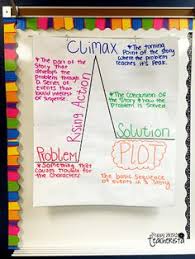 Climax
* The turning
Point of the story
where the problem
reaches it's Peak.
* The part of the
story that
develops the
problem through
a series of
events that
build interest
or suspense.
Rising Action
* The conclusion of
the story & how the
Problem is served.
Solution
Problem
* Something that
causes trouble for
the characters!
PLOT
the basic sequence
of events in a story
teacherista